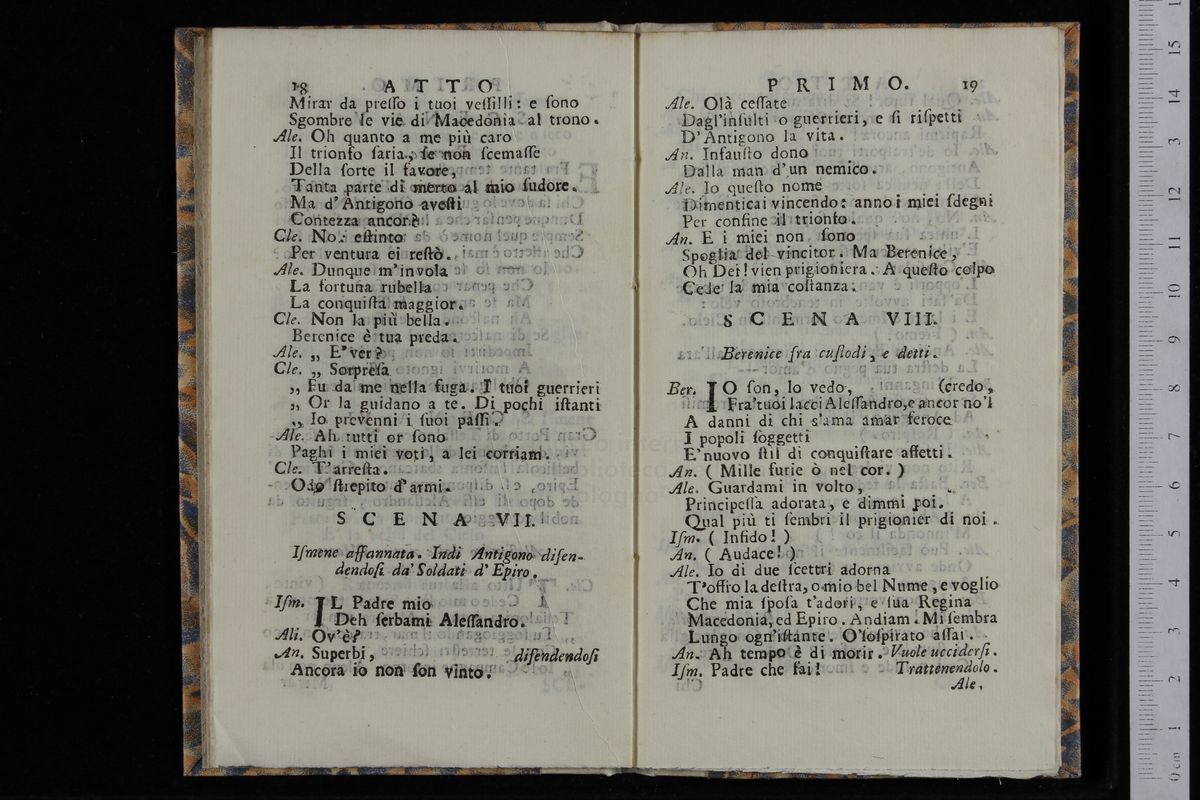 18 ATTO
Mirar da preſſo i tuoi veſſilli: e ſono
Sgombre le vie di Macedonia al trono.
Ale. Oh quanto a me più caro
Il trionfo ſaria, ſe non ſcemaſſe
Della ſorte il favore,
Tanta parte di merto al mio ſudore.
Ma d'Antigono aveſti
Contezza ancor?
Cle. No: eſtinto
Per ventura ei reſtò.
Ale. Dunque m'invola
La fortuna rubella
La conquiſta maggior.
Cle. Non la più bella.
Berenice è tua preda.
Ale. „ E' ver?
Cle. „ Sorpreſa
„ Fu da me nella fuga. I tuoi guerrieri
„ Or la guidano a te. Di pochi iſtanti
„ Io prevenni i ſuoi paſſi.
Ale. Ah tutti or ſono
Paghi i miei voti, a lei corriam.
Cle. T'arreſta.
Odo ſtrepito d'armi.
SCENA VII.
Iſmene affannata. Indi Antigono difen-
dendoſi da' Soldati d' Epiro.
Iſm. IL Padre mio
Deh ſerbami Aleſſandro.
Ali. Ov'è?
An. Superbi, difendendoſi
Ancora io non ſon vinto.
PRIMO. 19
Ale. Olà ceſſate
Dagl'inſulti o guerrieri, e ſi riſpetti
D'Antigono la vita.
An. Infauſto dono
Dalla man d'un nemico.
Ale. Io queſto nome
Dimenticai vincendo: anno i miei ſdegni
Per confine il trionfo.
An. E i miei non ſono
Spoglia del vincitor. Ma Berenice,
Oh Dei! vien prigioniera. A queſto colpo
Cede la mia coſtanza.
SCENA VIII.
Berenice fra cuſtodi, e detti.
Ber. IO ſon, lo vedo, (credo,
Fra'tuoi lacci Aleſſandro, e ancor no'l
A danni di chi s'ama amar feroce
I popoli ſoggetti
E'nuovo ſtil di conquiſtare affetti.
An. ( Mille furie ò nel cor. )
Ale. Guardami in volto,
Principeſſa adorata, e dimmi poi.
Qual più ti ſembri il prigionier di noi.
Iſm. ( Infido! )
An. ( Audace! )
Ale. Io di due ſcettri adorna
T'offro la deſtra, o mio bel Nume, e voglio
Che mia ſpoſa t'adori, e ſua Regina
Macedonia, ed Epiro. Andiam. Mi ſembra
Lungo ogn'iſtante. O'ſoſpirato aſſai.
An. Ah tempo è di morir. Vuole ucciderſi.
Iſm. Padre che fai! Trattenendolo.
Ale,